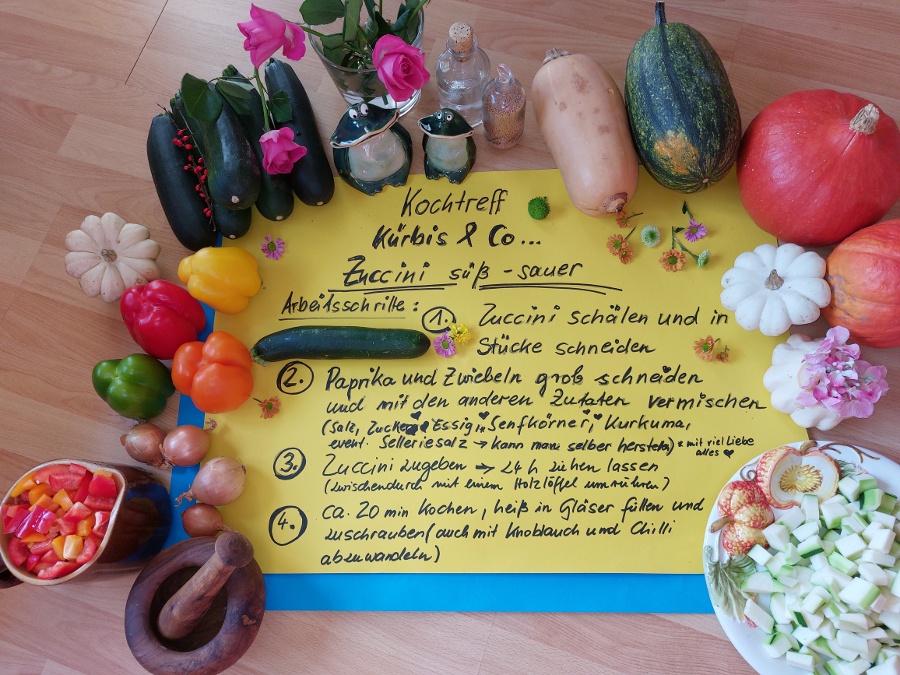 Kochtreff
Kürbis & Co...
Zuccini süß-sauer
Arbeitsschritte:
1. Zuccini schälen und in
Stücke schneiden
2. Paprika und Zwiebeln groß schneiden
und mit den anderen Zutaten vermischen
(Salz, Zucker, Essig, Senfkörner, Kurkuma,
event. Selleriesalz → kann man selber herstellen) * mit viel Liebe
alles ♥
3. Zuccini zugeben → 24 h ziehen lassen
(zwischendurch mit einem Holzlöffel umrühren)
4. ca. 20 min kochen, heiß in Gläser füllen und
zuschrauben (auch mit Knoblauch und Chilli
abzuwandeln)